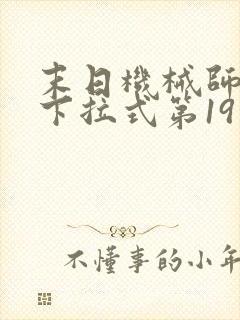 末日機械師
下拉式第19
不懂事的小年